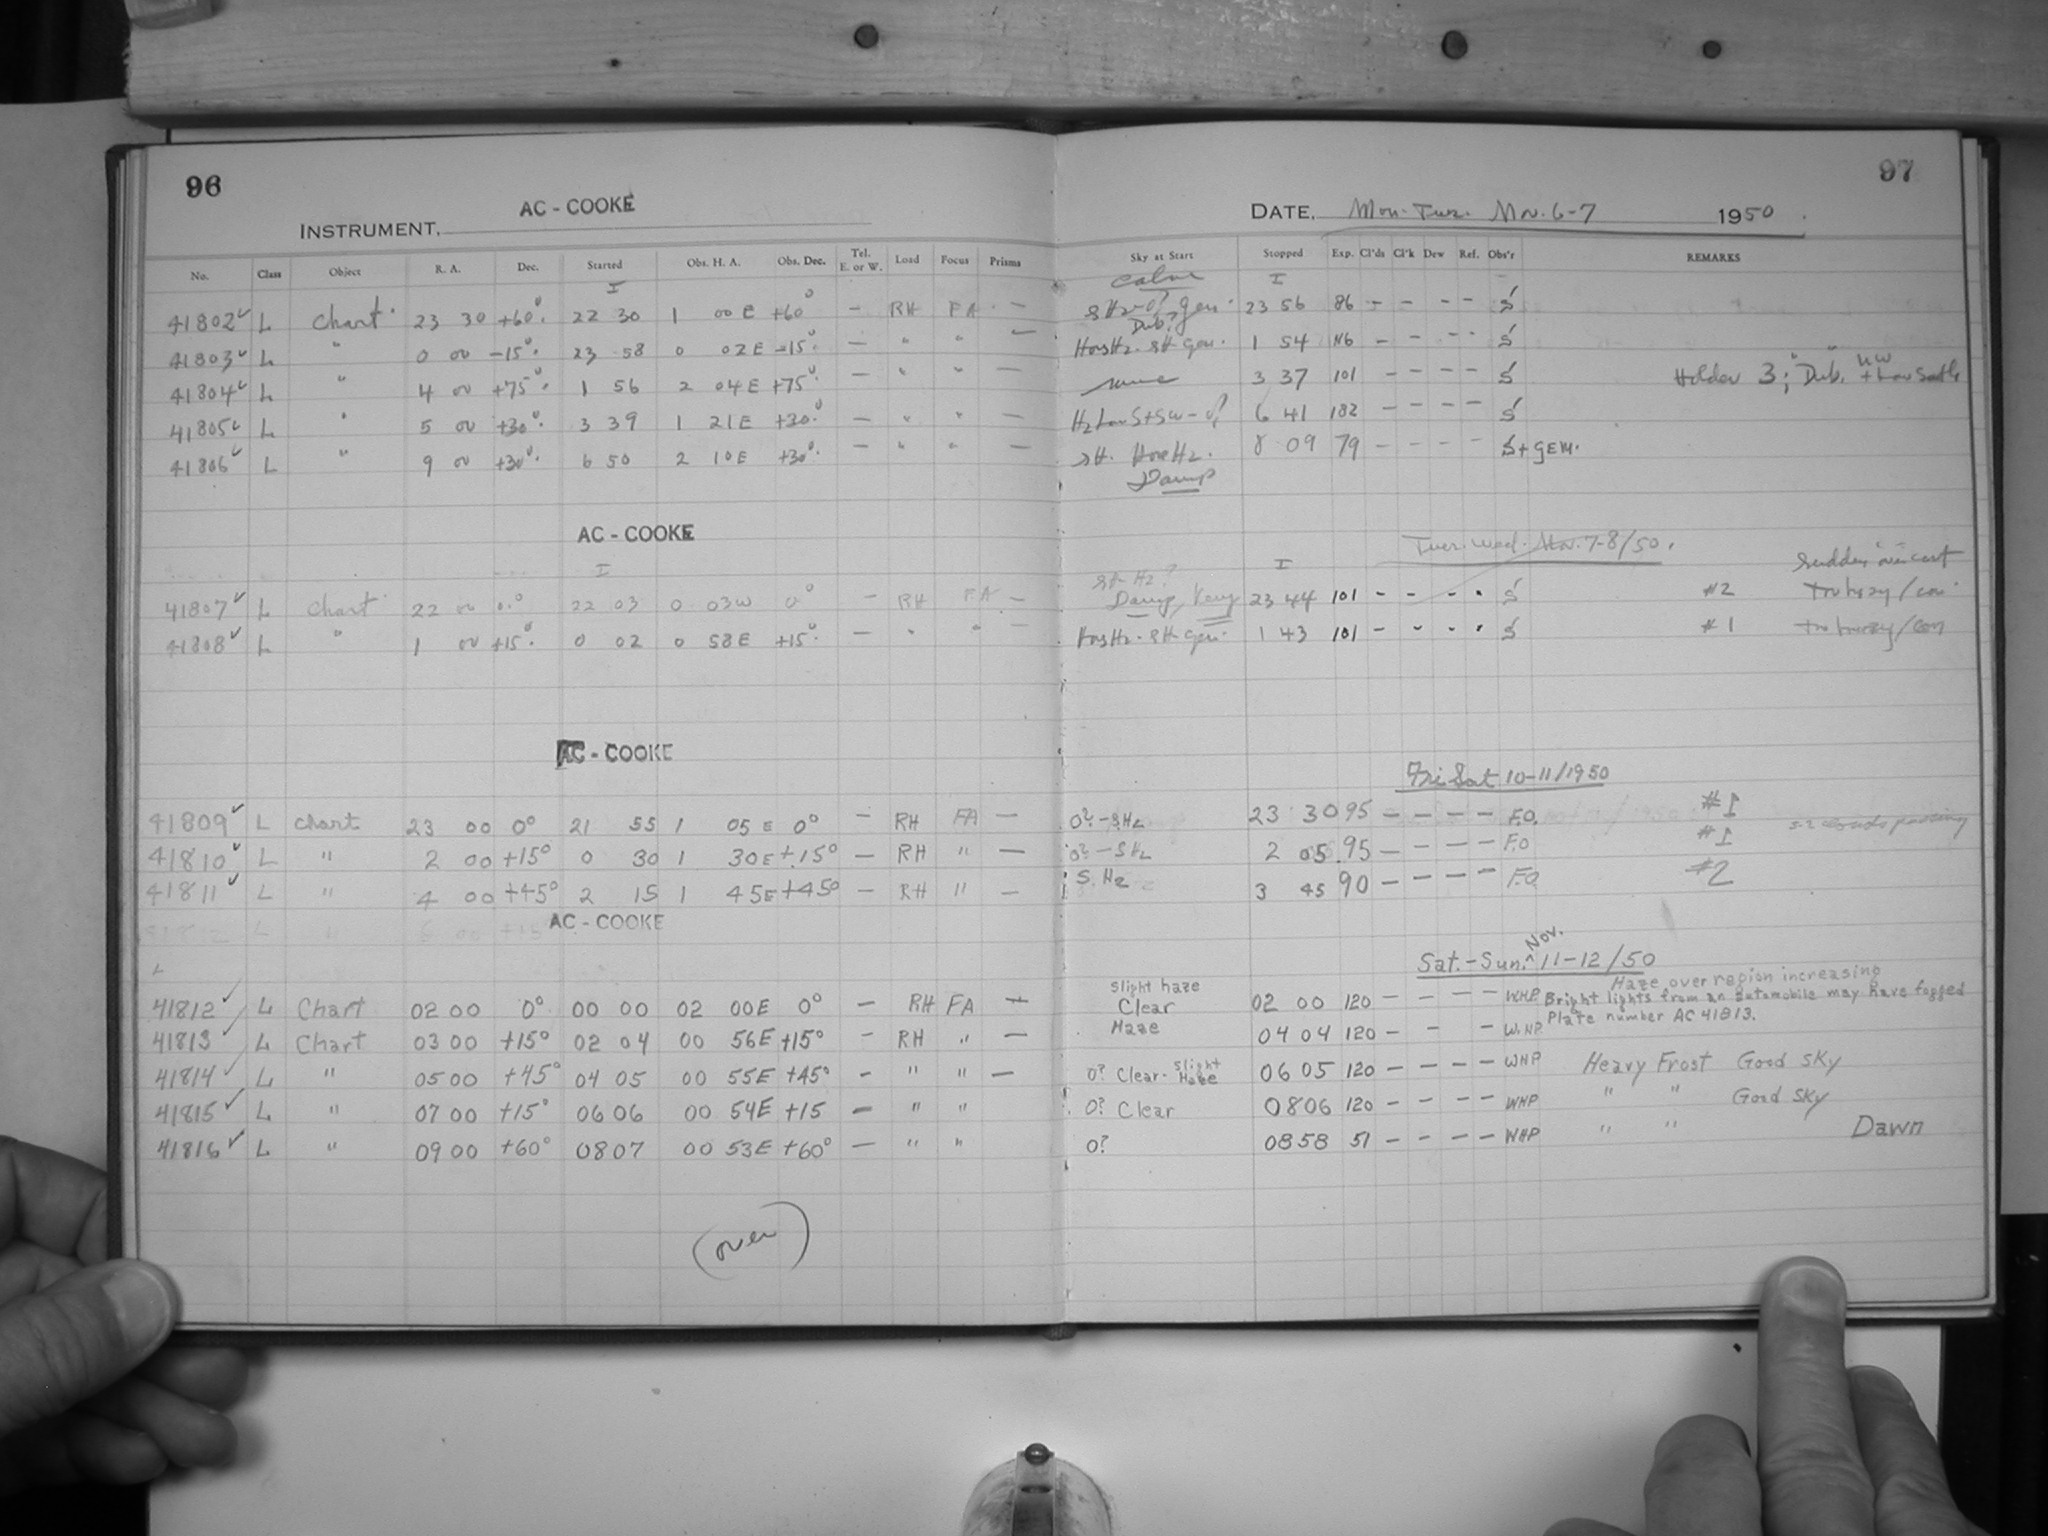 96
97
AC - COOKE
INSTRUMENT,
DATE, Mon. Tues. Nov. 6-7 1950
No. Class Object R. A. Dec. Started Obs. H. A. Obs. Dec. Tel. E. or W. Load Focus Prisms Sky at Start Stopped Exp. Cl'ds Cl'k Dew Ref. Obs'r REMARKS
I calm I
41802 ✓ L Chart 23 30 +60° 22 30 1 00 E +60° — RH FA — 23 56 86 - - - - S
41803 ✓ L " 0 00 -15° 23 58 0 02 E -15° — " " — 1 54 - - - - S
41804 ✓ L " 4 00 +75° 1 56 2 04 E +75° — " " — same 3 37 101 - - - - S Holder 3; Dub. NW
41805 ✓ L " 5 00 +30° 3 39 1 21 E +30° — " " — Hz low S + SW - 0? 6 41 182 - - - - S
41806 ✓ L " 9 00 +30° 6 50 2 10 E +30° — " " — 8 09 79 - - - - S + GEM.
Damp
AC - COOKE
Tues. Wed. Nov. 7-8/50.
I I sudden overcast
41807 ✓ L Chart 22 00 0° 22 03 0 03 W 0° — RH FA — Damp, Very 23 44 101 - - - - S #2 too hazy/
41808 ✓ L " 1 00 +15° 0 02 0 58 E +15° — " " — 1 43 101 - - - - S #1 too hazy/
AC - COOKE
Fri Sat 10-11/1950
41809 ✓ L Chart 23 00 0° 21 55 1 05 E 0° — RH FA — 0? - S Hz 23 30 95 — — — — F.O. #1
41810 ✓ L " 2 00 +15° 0 30 1 30 E +15° — RH " — 0? - S Hz 2 05 95 — — — — F.O #1
41811 ✓ L " 4 00 +45° 2 15 1 45 E +45° — RH " — S. Hz 3 45 90 — — — — F.O #2
AC - COOKE
Sat. - Sun. Nov. 11-12/50
41812 ✓ L Chart 02 00 0° 00 00 02 00 E 0° — RH FA — slight haze Clear 02 00 120 — — — — WHP Haze over region increasing
Bright lights from an automobile may have fogged
Plate number AC 41813.
41813 ✓ L Chart 03 00 +15° 02 04 00 56 E +15° — RH " — Haze 04 04 120 — — — WHP
41814 ✓ L " 05 00 +45° 04 05 00 55 E +45° — " " — 0? Clear - slight Haze 06 05 120 — — — — WHP Heavy Frost Good sky
41815 ✓ L " 07 00 +15° 06 06 00 54 E +15 — " " 0? Clear 08 06 120 — — — — WHP " " Good sky
41816 ✓ L " 09 00 +60° 08 07 00 53 E +60° — " " 0? 08 58 51 — — — — WHP " " Dawn
(over)